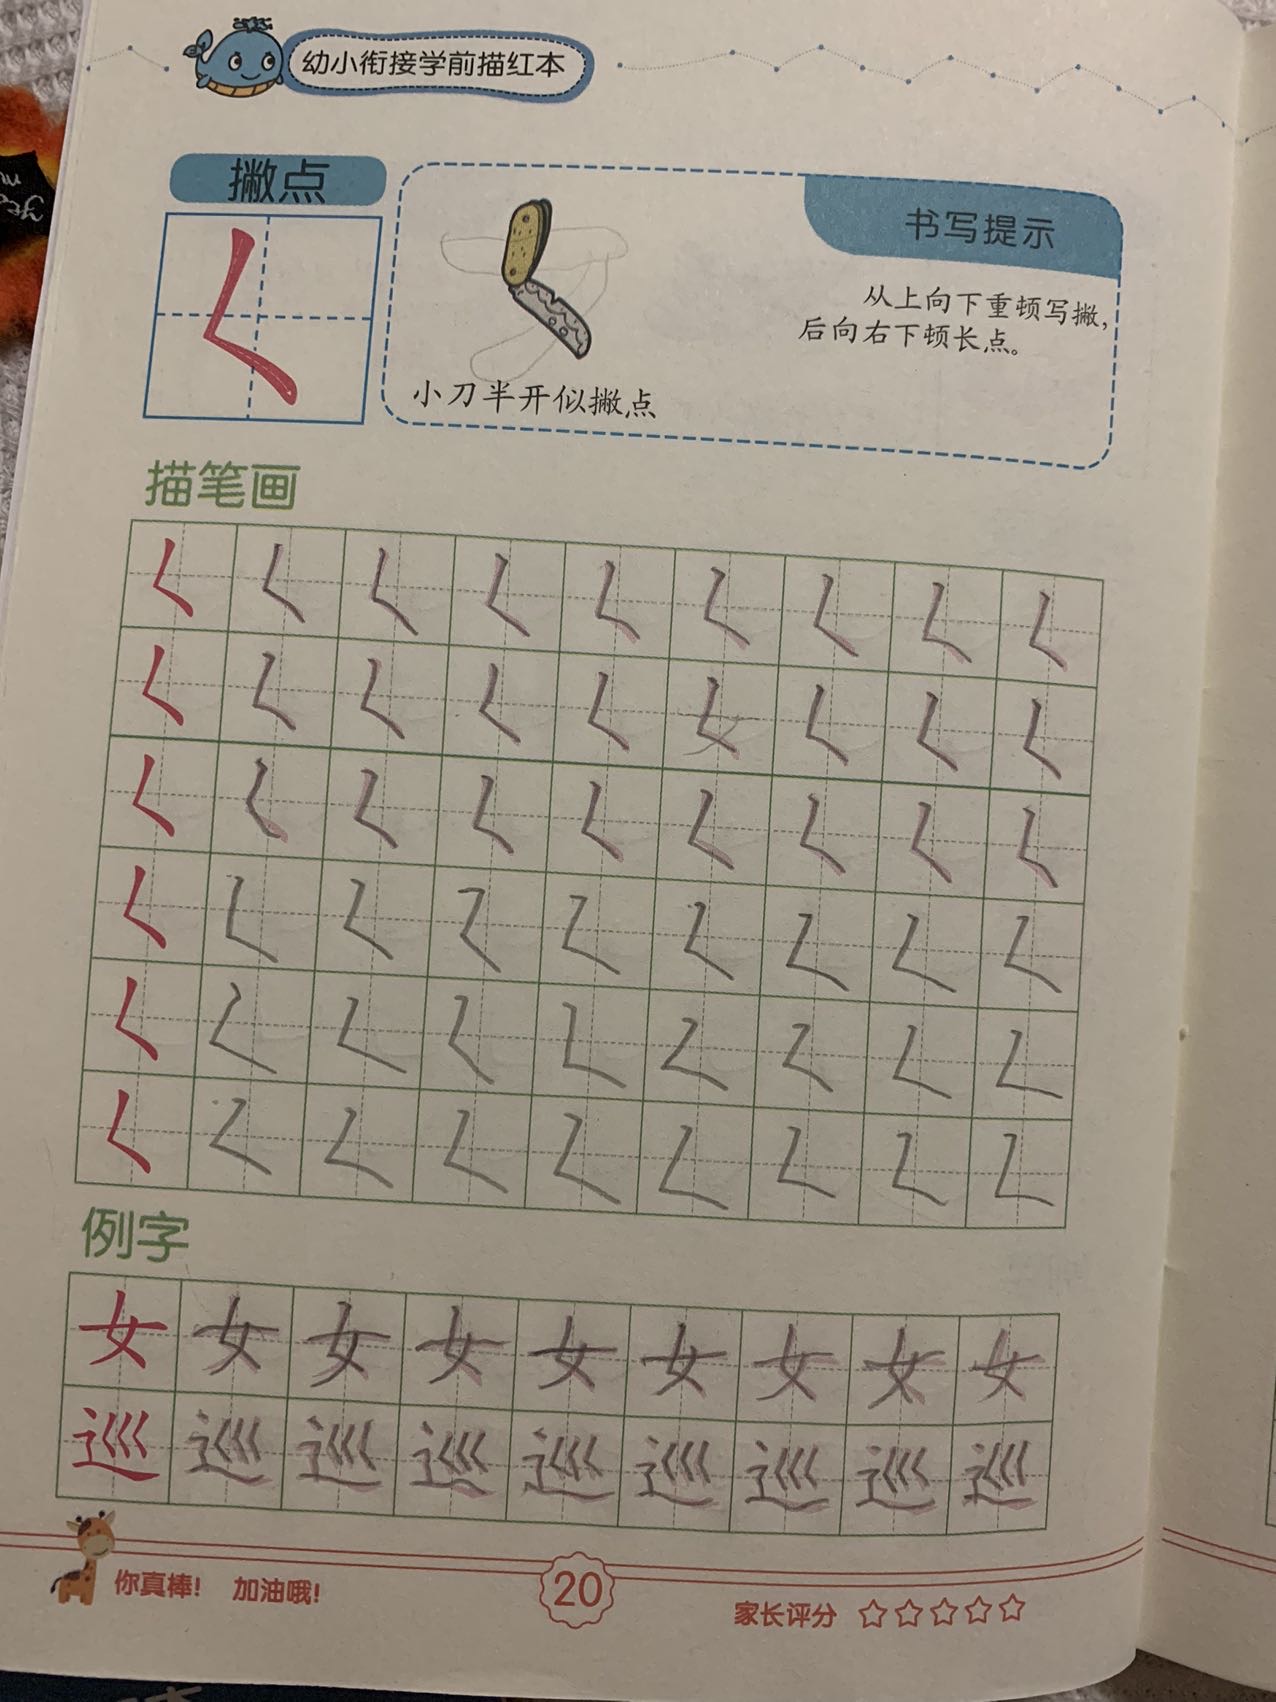 幼小衔接学前描红本
撇点
书写提示
从上向下重顿写撇,
后向右下顿长点。
小刀半开似撇点
描笔画
㇛ ㇛ ㇛ ㇛ ㇛ ㇛ ㇛ ㇛ ㇛
㇛ ㇛ ㇛ ㇛ ㇛ ㇛ ㇛ ㇛ ㇛
㇛ ㇛ ㇛ ㇛ ㇛ ㇛ ㇛ ㇛ ㇛
㇛ ㇛ ㇛ ㇛ ㇛ ㇛ ㇛ ㇛ ㇛
㇛ ㇛ ㇛ ㇛ ㇛ ㇛ ㇛ ㇛ ㇛
㇛ ㇛ ㇛ ㇛ ㇛ ㇛ ㇛ ㇛ ㇛
例字
女 女 女 女 女 女 女 女 女
巡 巡 巡 巡 巡 巡 巡 巡 巡
你真棒! 加油哦!
20
家长评分 ☆☆☆☆☆